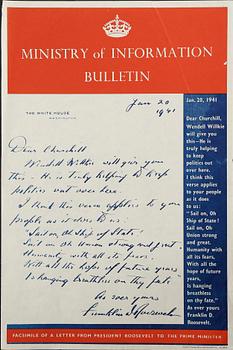 MINISTRY OF INFORMATION
BULLETIN
THE WHITE HOUSE
WASHINGTON
Jan 20
1941
Dear Churchill
Wendell Willkie will give you
this - He is truly helping to keep
politics out over here.
I think this verse applies to your
people as it does to us:
"Sail on, Oh Ship of State!
Sail on Oh Union strong and great.
Humanity with all its fears
With all the hope of future years
Is hanging breathless on thy fate"
As ever yours
Franklin D. Roosevelt
Jan. 20, 1941
Dear Churchill,
Wendell Willkie
will give you
this—He is
truly helping to
keep politics
out over here.
I think this
verse applies
to your people
as it does
to us:
"Sail on, Oh
Ship of State!
Sail on, Oh
Union strong
and great.
Humanity with
all its fears,
With all the
hope of future
years,
Is hanging
breathless on
thy fate,"
As ever yours
Franklin D.
Roosevelt.
FACSIMILE OF A LETTER FROM PRESIDENT ROOSEVELT TO THE PRIME MINISTER